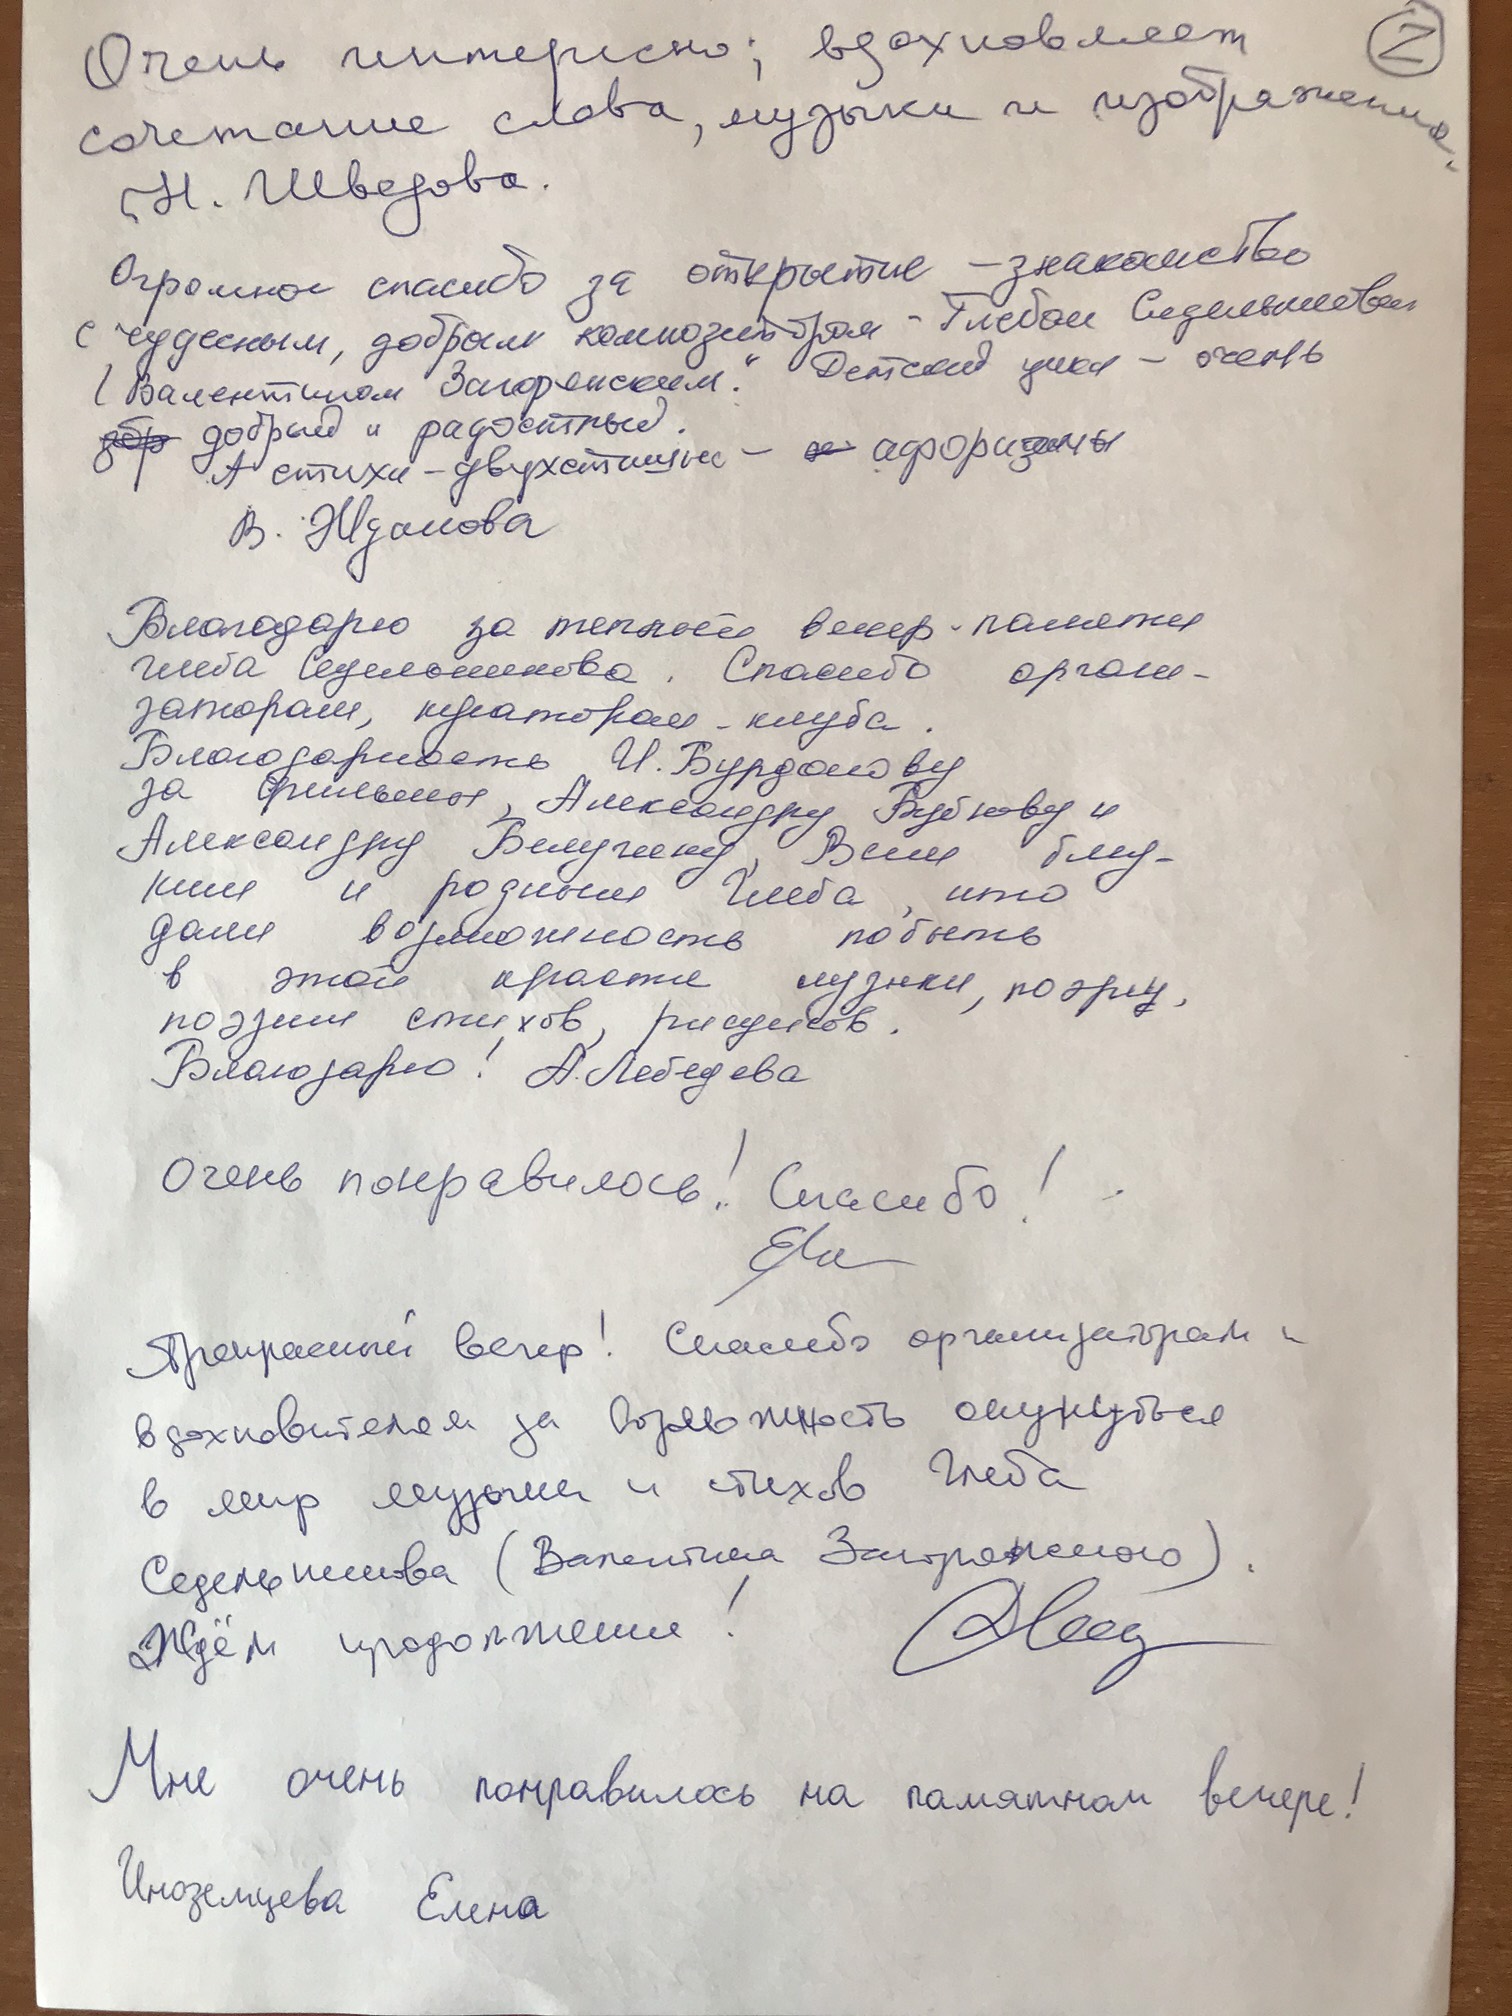 2
Очень интересно; вдохновляет
сочетание слова, музыки и изображения.
Н. Шведова.
Огромное спасибо за открытие – знакомство
с чудесным, добрым композитором – Глебом Седельниковым
(Валентином Загорянским." Детский цикл – очень
добрый и радостный.
А стихи – двухстишье – афоризмы
В. Жданова
Благодарю за теплый вечер-памяти
Глеба Седельникова. Спасибо органи-
заторам, кураторам клуба.
Благодарность И. Бурдонову
за фильмы, Александру Бубнову и
Александру Белугину, Всем близ-
ким и родным Глеба, что
дали возможность побыть
в этой красоте музыки,
поэзии стихов, рисунков.
Благодарю! А. Лебедева
Очень понравилось! Спасибо!
Прекрасный вечер! Спасибо организаторам и
вдохновителям за возможность окунуться
в мир музыки и стихов Глеба
Седельникова (Валентина Загорянского).
Ждём продолжения!
Мне очень понравилось на памятном вечере!
Иноземцева Елена